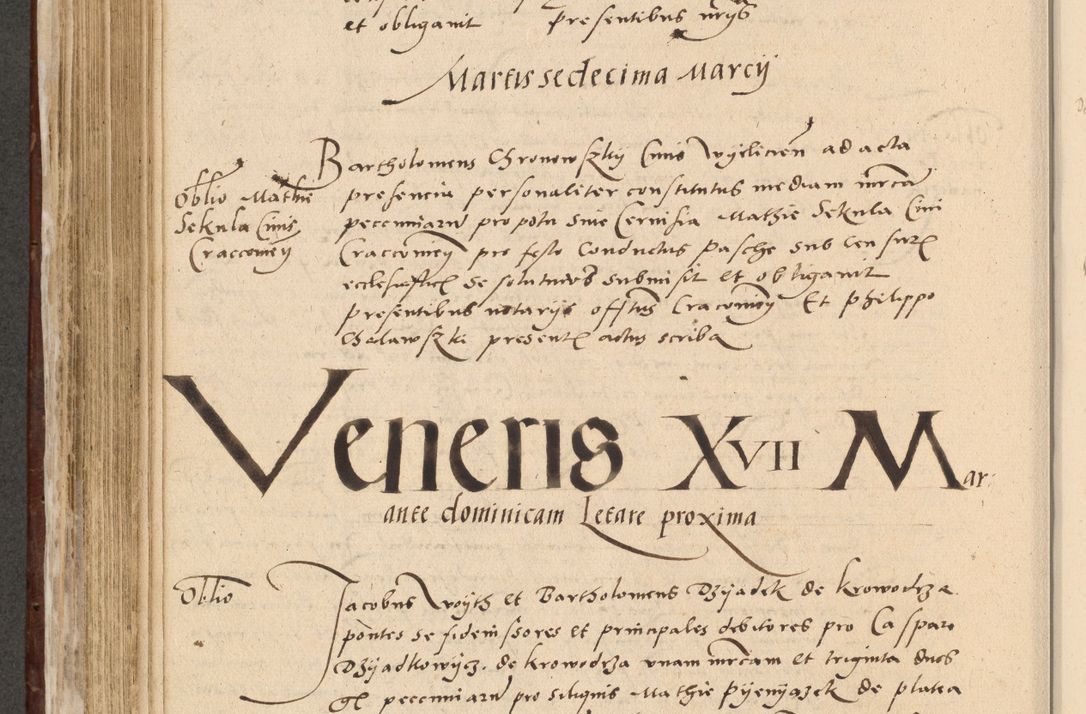 et obligavit presentibus nr̄ijs
Martis sedecima Marcij
Oblio Mathie
Sekula Civis
Craccovieñ
Bartholomeus Chronowszkij Civis Wyeliciēn ad acta
presencia personaliter constitutus mediam mr̄cā
pecuniarū pro potu sive Cervisia Mathie Sekula Civi
Craccovieñ pro festo Conductus Pasche sub Censuris
ecclesiasticis se soluturū submisit Et obligavit
presentibus notarijs Craccovieñ Et Philippo
Chelawszki presentis actus scriba
Veneris XVII Mar
ante dominicam Letare proxima
Oblio
Jacobus Woyth et Bartholomeus Dzyadek de Krowodrza
pontes se fideiussores et principales debitores pro Casparo
Dzyadkowycz de Krowodrza unam mr̄cam et triginta duos
gs pecuniarū pro siliginis Mathie Pyenyazek de platea